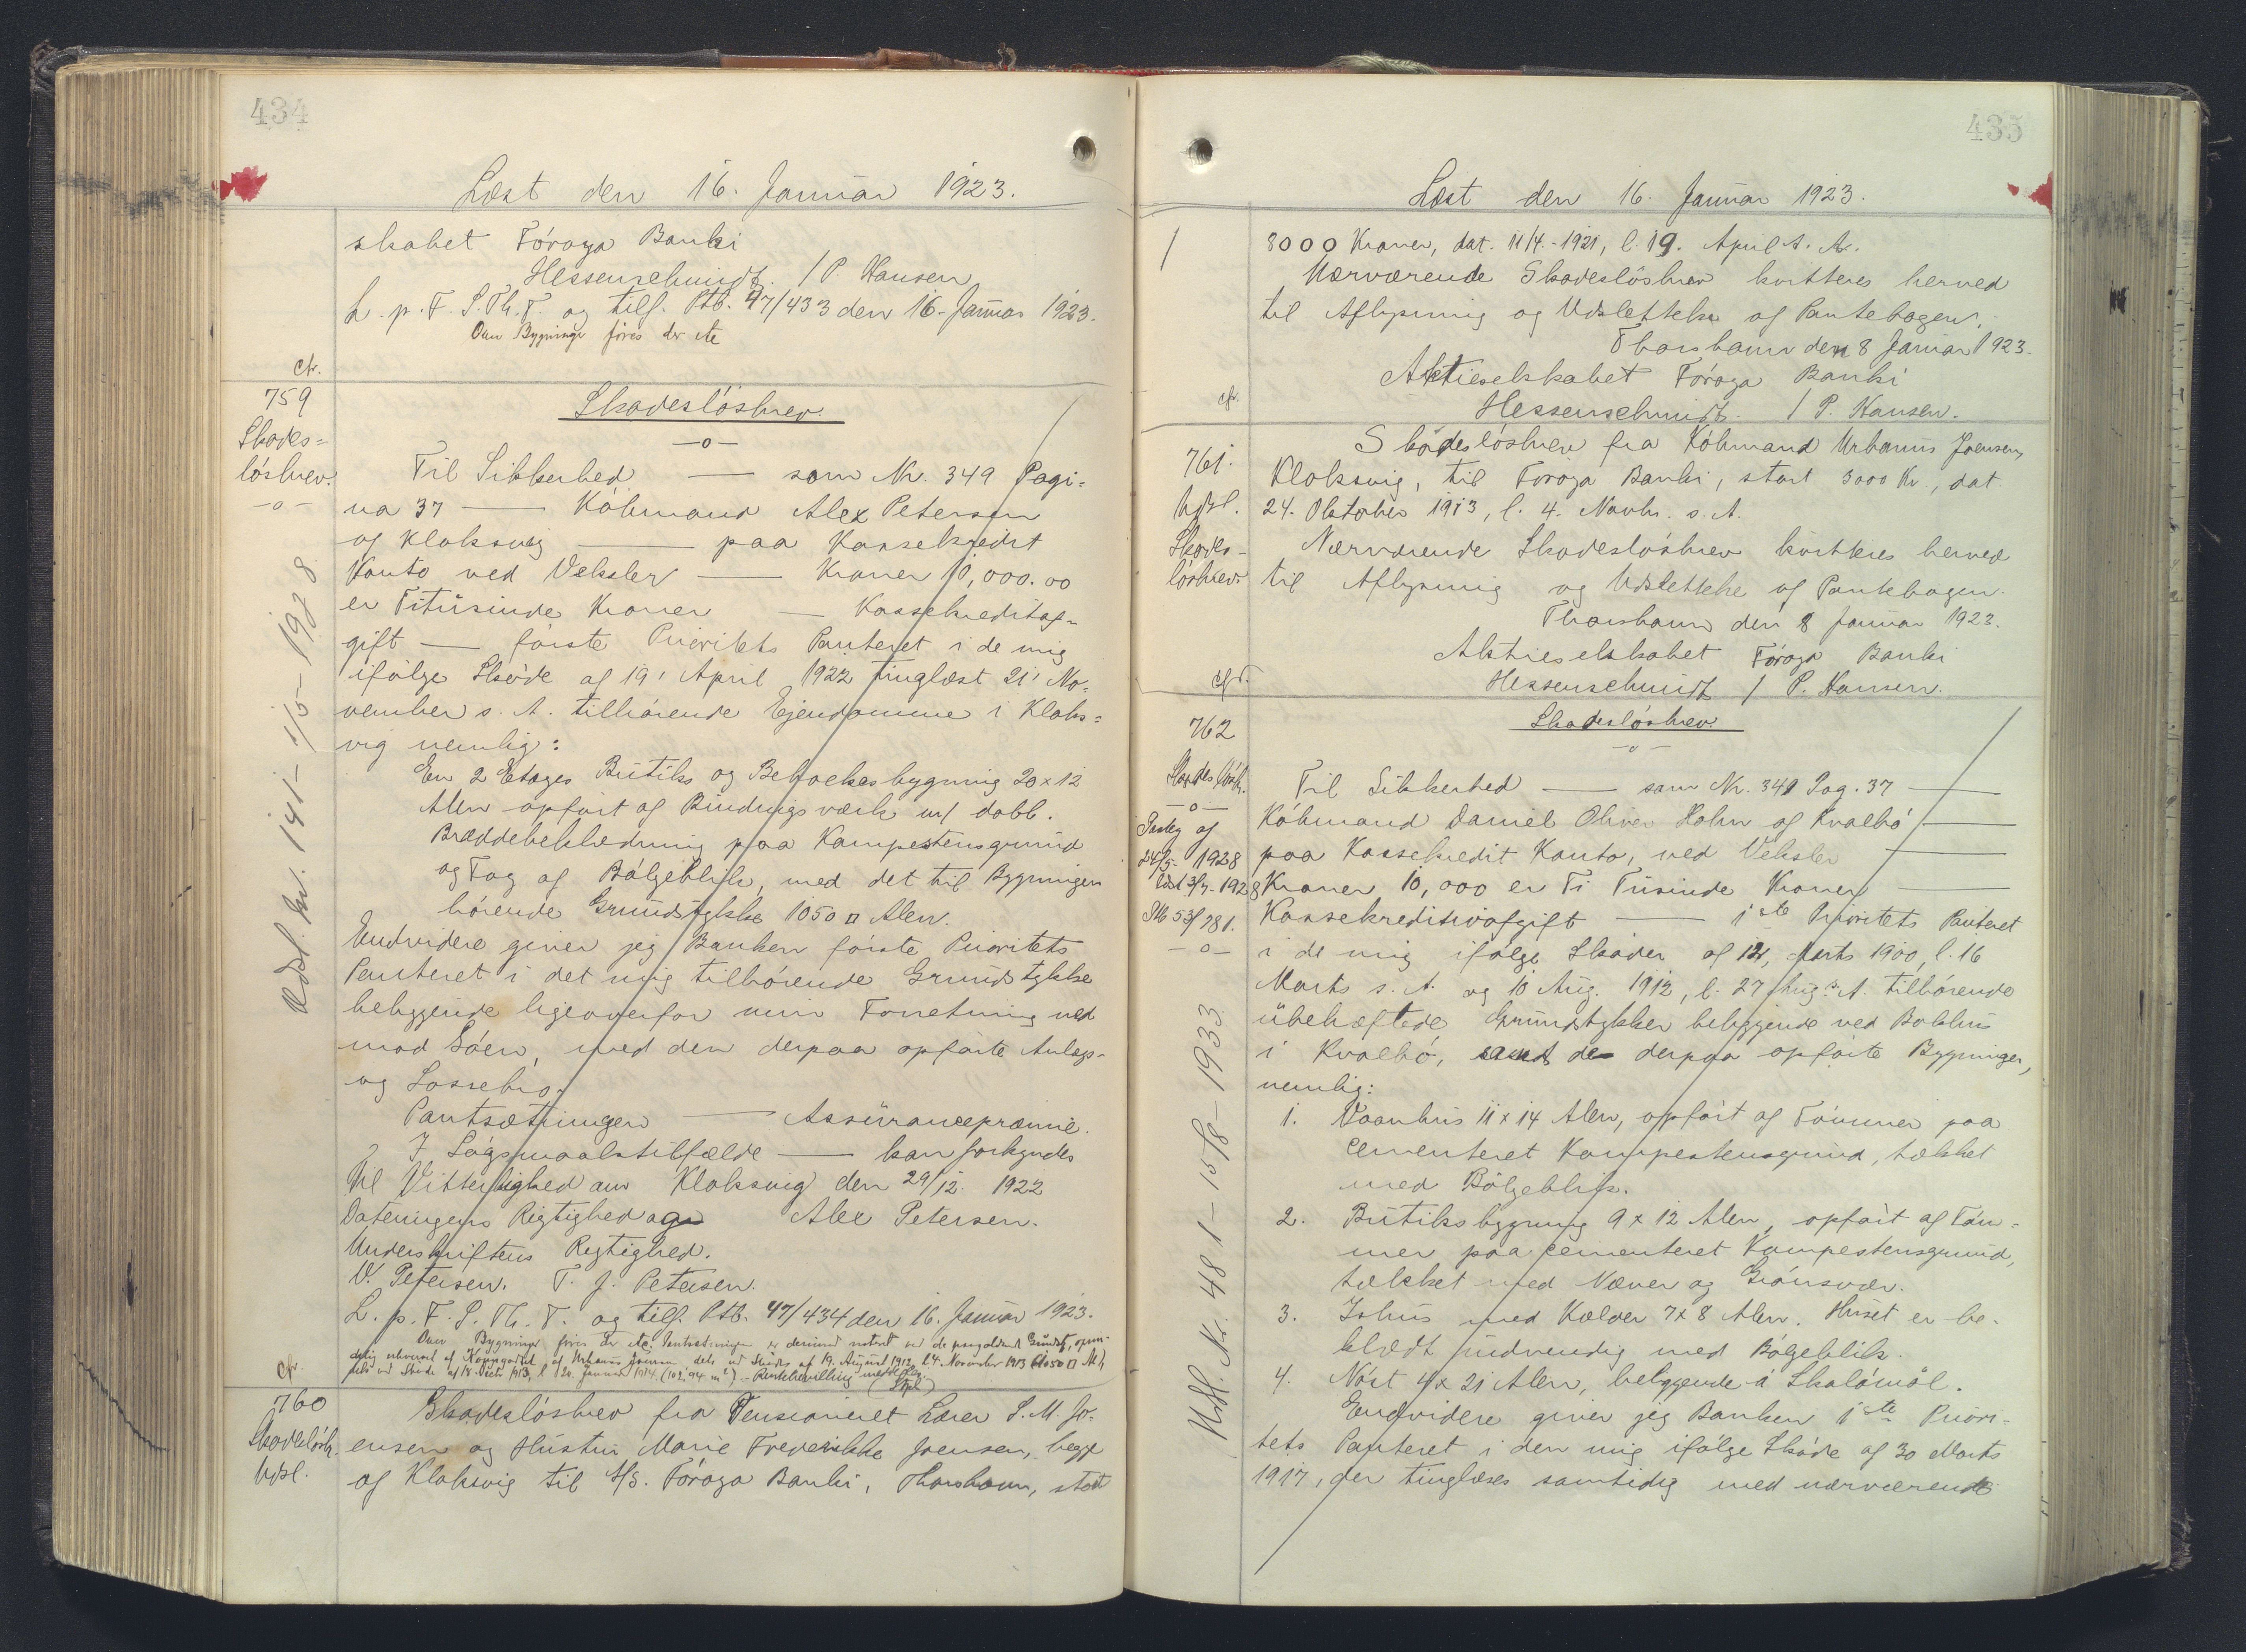 434
Læst den 16. Januar 1923.
skabet Föroya Banki
Hessenschmidt. / P. Hansen
L. p. F. S. Th. T. og tilf. Ptb. 47/433 den 16. Januar 1923.
Om Bygninge föres der ete
cfr.
759
Skades=
löshrev.
—o—
Skadeslösbrev.
—o—
Til Sikkerhed — som Nr. 349 Pagi=
na 37 — Köbmand Alex Petersen
af Klaksvig — paa Kassekredit
Konto ved Veksler — Kroner 10,000.00
er Titusinde Kroner — Kassekreditaf=
gift — förste Prioritets Panteret i de mig
ifölge Sköde af 19' April 1922 tinglæst 21' No=
vember s. A. tilhörende Ejendomme i Klaks=
vig nemlig:
En 2 Etages Butiks og Beboelsesbygning 20 x 12
Alen opfört af Bindingsværk m/ dobb.
Bræddebeklædning paa Kampestensgrund
og Tag af Bölgeblik, med det til Bygningen
hörende Grundstykke 1050 □ Alen.
Endvidere giver jeg Banken förste Prioritets
Panteret i det mig tilhörende Grundstykke
beliggende ligeoverfor min Forretning ned
mod Söen, med den derpaa opförte Anlægs-
og Lossebro.
Pantsætningen — Assurancepræmie.
I Lögsmaalstilfælde — kan forkyndes
Udsl. kv. 141 - 1/5 - 1928
Til Vitterlighed om Klaksvig den 29/12. 1922
Dateringens Rigtighed og Alex Petersen.
Underskriftens Rigtighed.
V. Petersen. T. J. Petersen.
L. p. F. S. Th. T. og tilf. Ptb. 47/434 den 16. Januar 1923.
Om Bygninge föres der ete. Pantsætningen er derimod noteret ved de Grundst,
erhvervet af af Urbanus Joensen dels ved Sködet af 19. August 1913 l. 4. November 1913 (1050 □ Al),
dels ved Sköde af 18. 1913, l. 20. Januar 1914. (102,94 m²)
cfr.
760
Skadeslösb.
Udsl.
Skadeslösbrev fra Pensioneret Lærer S. M. Jo-
ensen og Hustru Marie Frederikke Joensen, begge
af Klaksvig til A/S. Föroya Banki, Thorshavn, stort
435
Læst den 16. Januar 1923.
8000 Kroner, dat. 11/4.-1921, l. 19. April s. A.
Nærværende Skadeslösbrev kvitteres herved
til Aflysning og Udslettelse af Pantebogen.
Thorshavn den 8 Januar 1923.
Aktieselskabet Föroya Banki
Hessenschmidt. / P. Hansen.
cfr.
761.
Udsl.
Skades-
lösbrev.
Skadeslösbrev fra Köbmand Urbanus Joensen,
Klaksvig, til Föroya Banki, stort 3000 Kr., dat.
24. Oktober 1913, l. 4. Novbr. s. A.
Nærværende Skadeslösbrev kvitteres herved
til Aflysning og Udslettelse af Pantebogen.
Thorshavn den 8 Januar 1923.
Aktieselskabet Föroya Banki
Hessenschmidt / P. Hansen.
762
Skadeslösb.
—o—
af
24/5- 1928
læst 3/7- 1928
Ptb 53/781.
—o—
Skadeslösbrev.
—o—
Til Sikkerhed — som Nr. 349 Pag. 37 —
Köbmand Daniel Oliver Holm af Kvalbö —
paa Kassekredit Konto, ved Veksler —
Kroner 10,000 er Ti Tusinde Kroner —
Kassekreditivafgift — 1ste Prioritets Panteret
i de mig ifölge Sköder af 12, Marts 1900, l. 16
Marts s. A. og 10 Aug. 1912, l. 27 Aug. s. A. tilhörende
übehæftede Grundstykker beliggende ved Bakkus
i Kvalbö, samt de derpaa opförte Bygninger,
nemlig:
1. Vaanhus 11 x 14 Alen, opfört af Tömmer paa
cementeret Kampestensgrund, tækket
med Bölgeblik.
2. Butiksbygning 9 x 12 Alen, opfört af Töm-
mer paa cementeret Kampestensgrund,
tækket med Næver og Grönsvær.
3. Ishus med Kælder 7x8 Alen. Huset er be-
klædt indvendig med Bölgeblik.
4. Nöst 4 x 21 Alen, beliggende á Skalámöl.
Endvidere giver jeg Banken 1ste Priori-
tets Panteret i den mig ifölge Sköde af 30 Marts
1917, der tinglæses samtidig med nærværende
Udsl. Nr. 481 - 15/8 - 1933